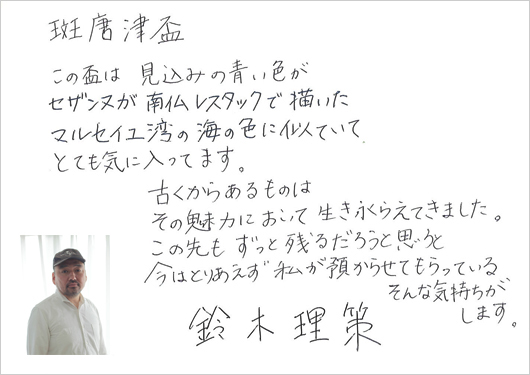 斑唐津盃
この盃は 見込みの青い色が
セザンヌが南仏レスタックで描いた
マルセイユ湾の海の色に似ていて
とても気に入ってます。
古くからあるものは
その魅力において生き永らえてきました。
この先も ずっと残るだろうと思うと
今はとりあえず私が預からせてもらっている
そんな気持ちが
します。
鈴木理策